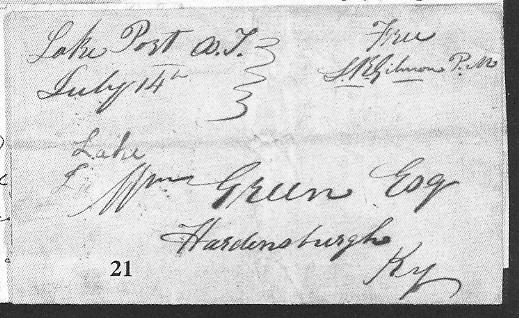 Lake Post A.T.
July 14th
Free
S.R. Gilmon P.M
Lake
Wm Green Esq
Hardensburgh
Ky
21